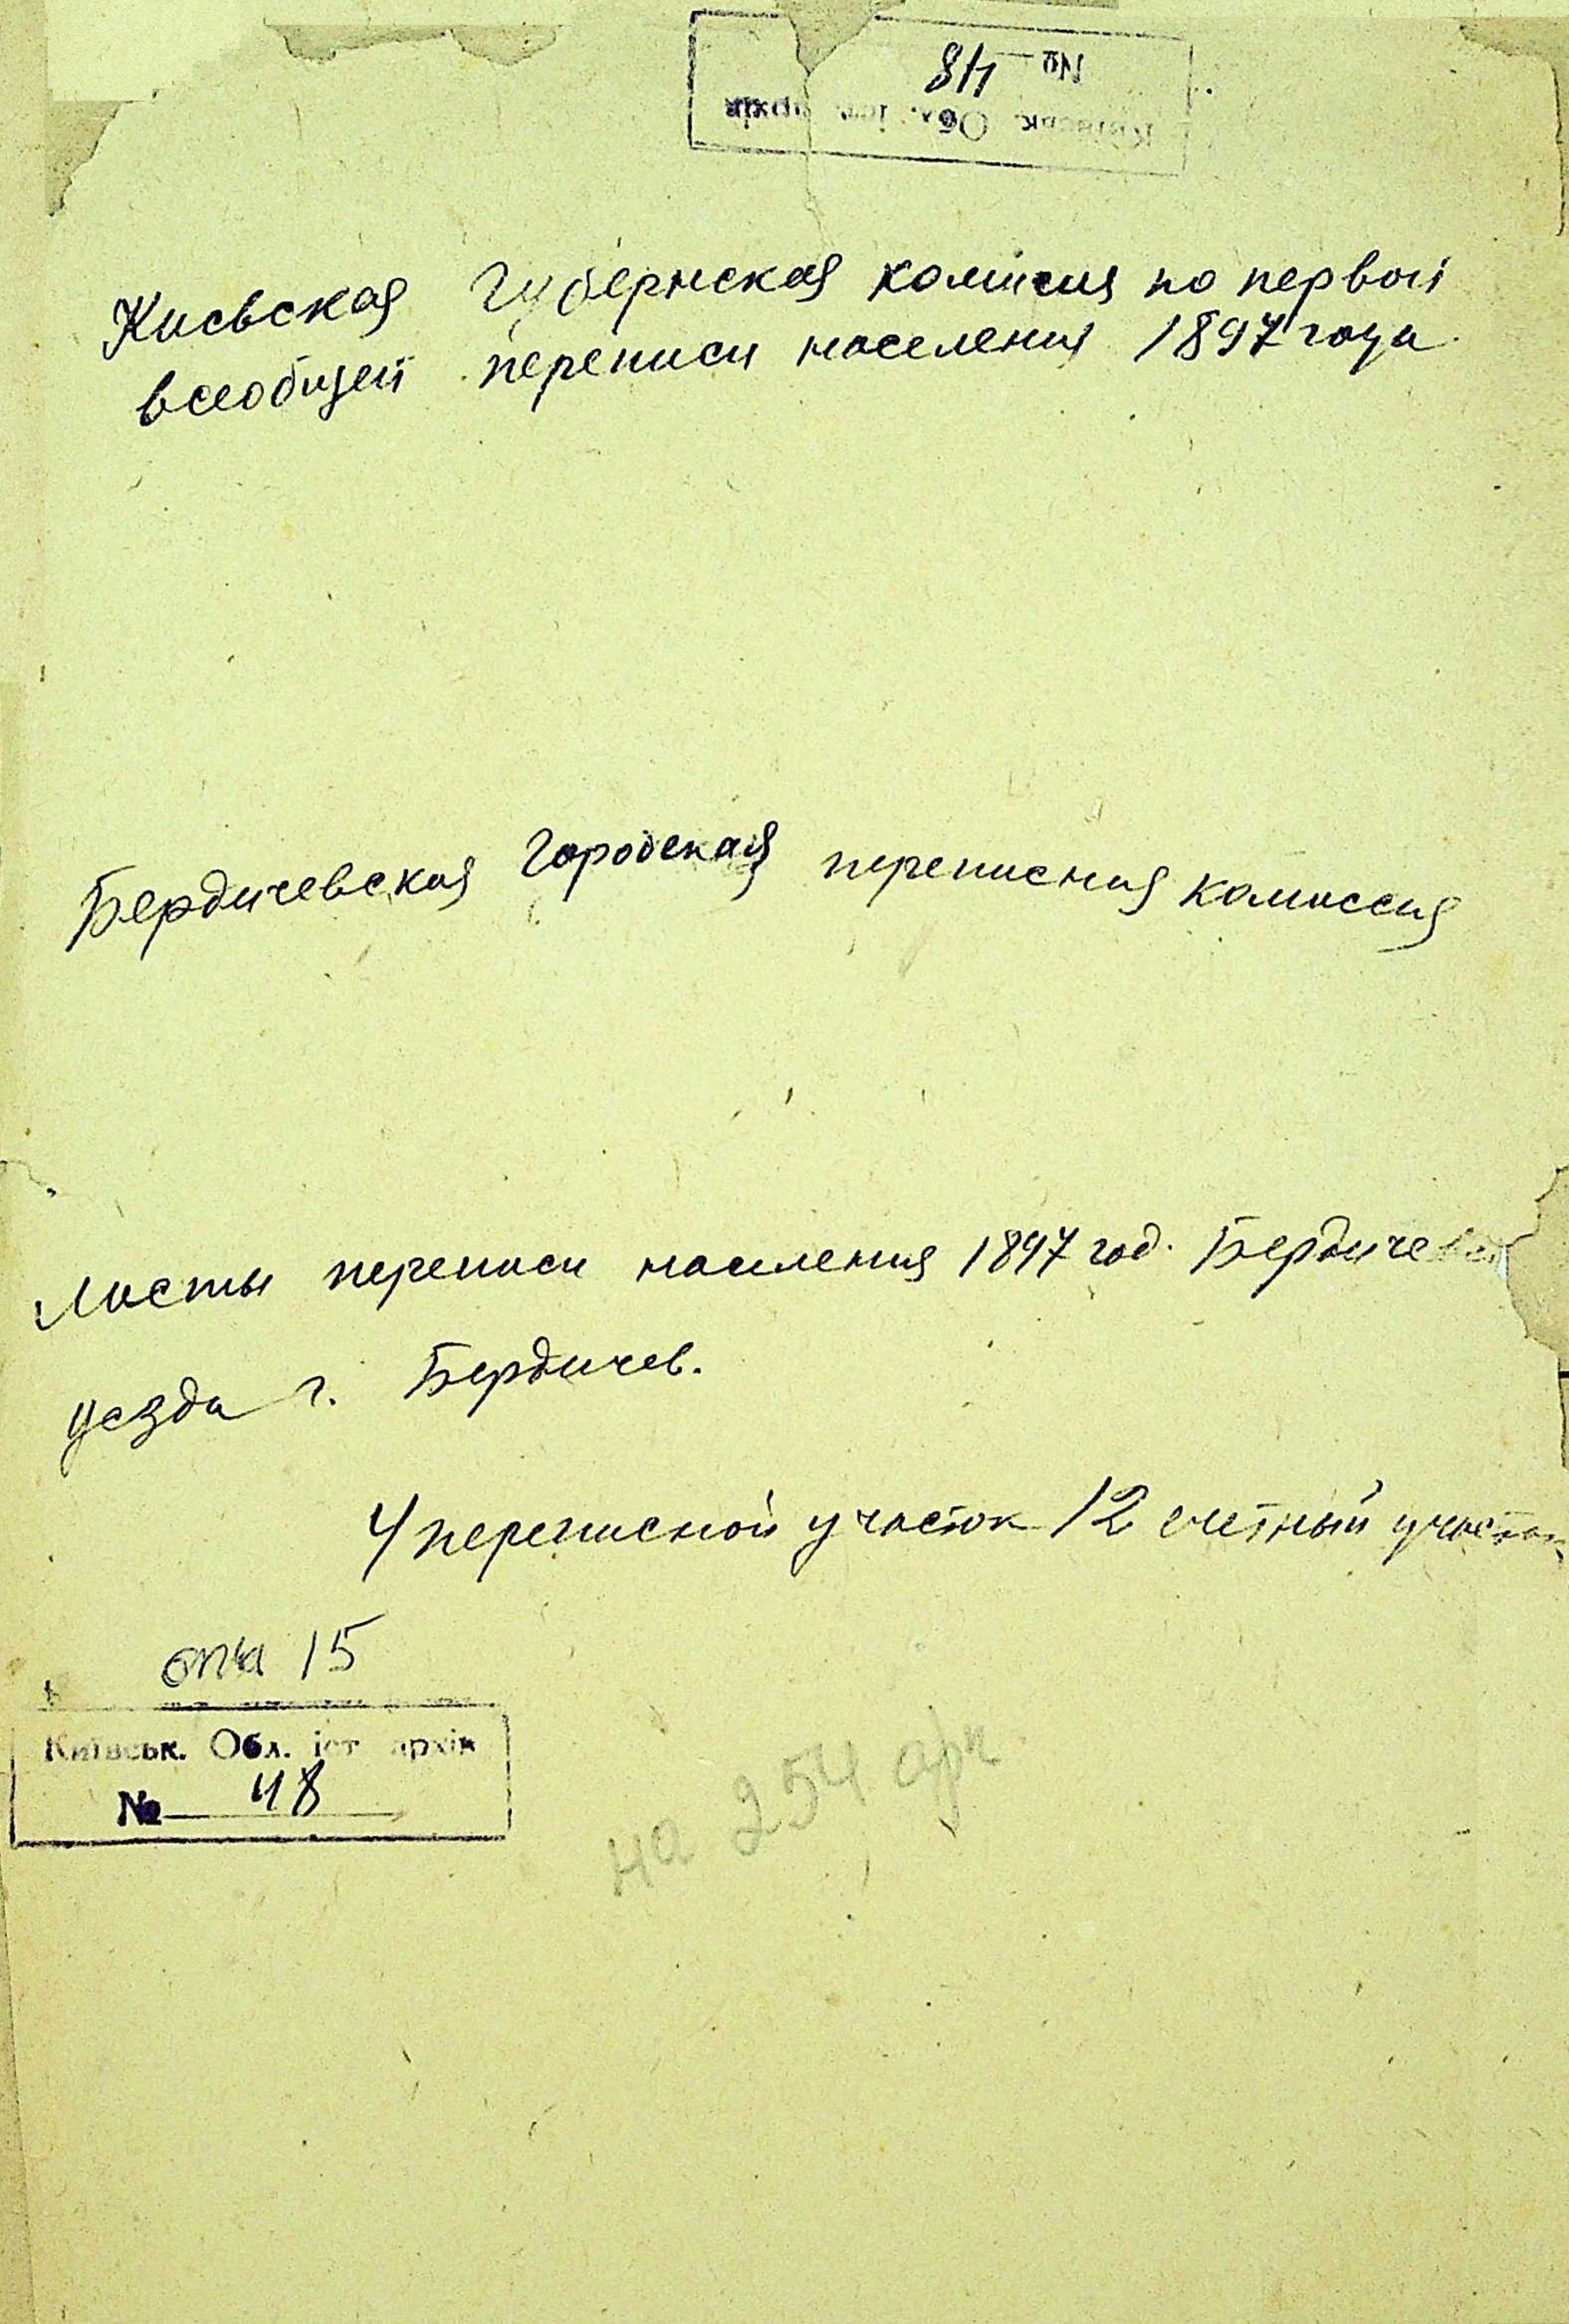 № 48
Київськ. Обл. іст. архів
Киевская Губернская комисия по первой
всеобщей переписи населения 1897 года.
Бердичевская городская переписная комиссия
Листы переписи населения 1897 год. Бердичевск
уезда г. Бердичев.
4 переписной участок 12 счетный участок
опис 15
Київськ. Обл. іст архів
№ 48
на 254 арк